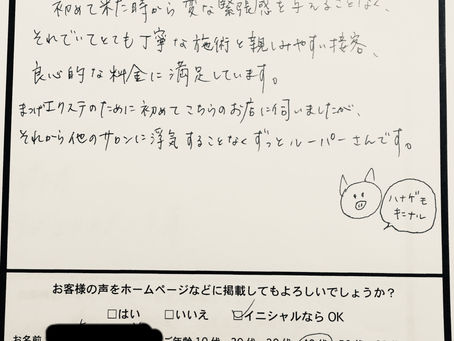 初めて来た時から変な緊張感を与えることなく、
それでいてとても丁寧な施術と親しみやすい接客、
良心的な料金に満足しています。
まつげエクステのために初めてこちらのお店に伺いましたが、
それから他のサロンに浮気することなくずっとルーパーさんです。
ハナゲモ
キニナル
お客様の声をホームページなどに掲載してもよろしいでしょうか？
□はい □いいえ ☑イニシャルなら OK
お名前 ご年齢 10代・20代・30代・40代